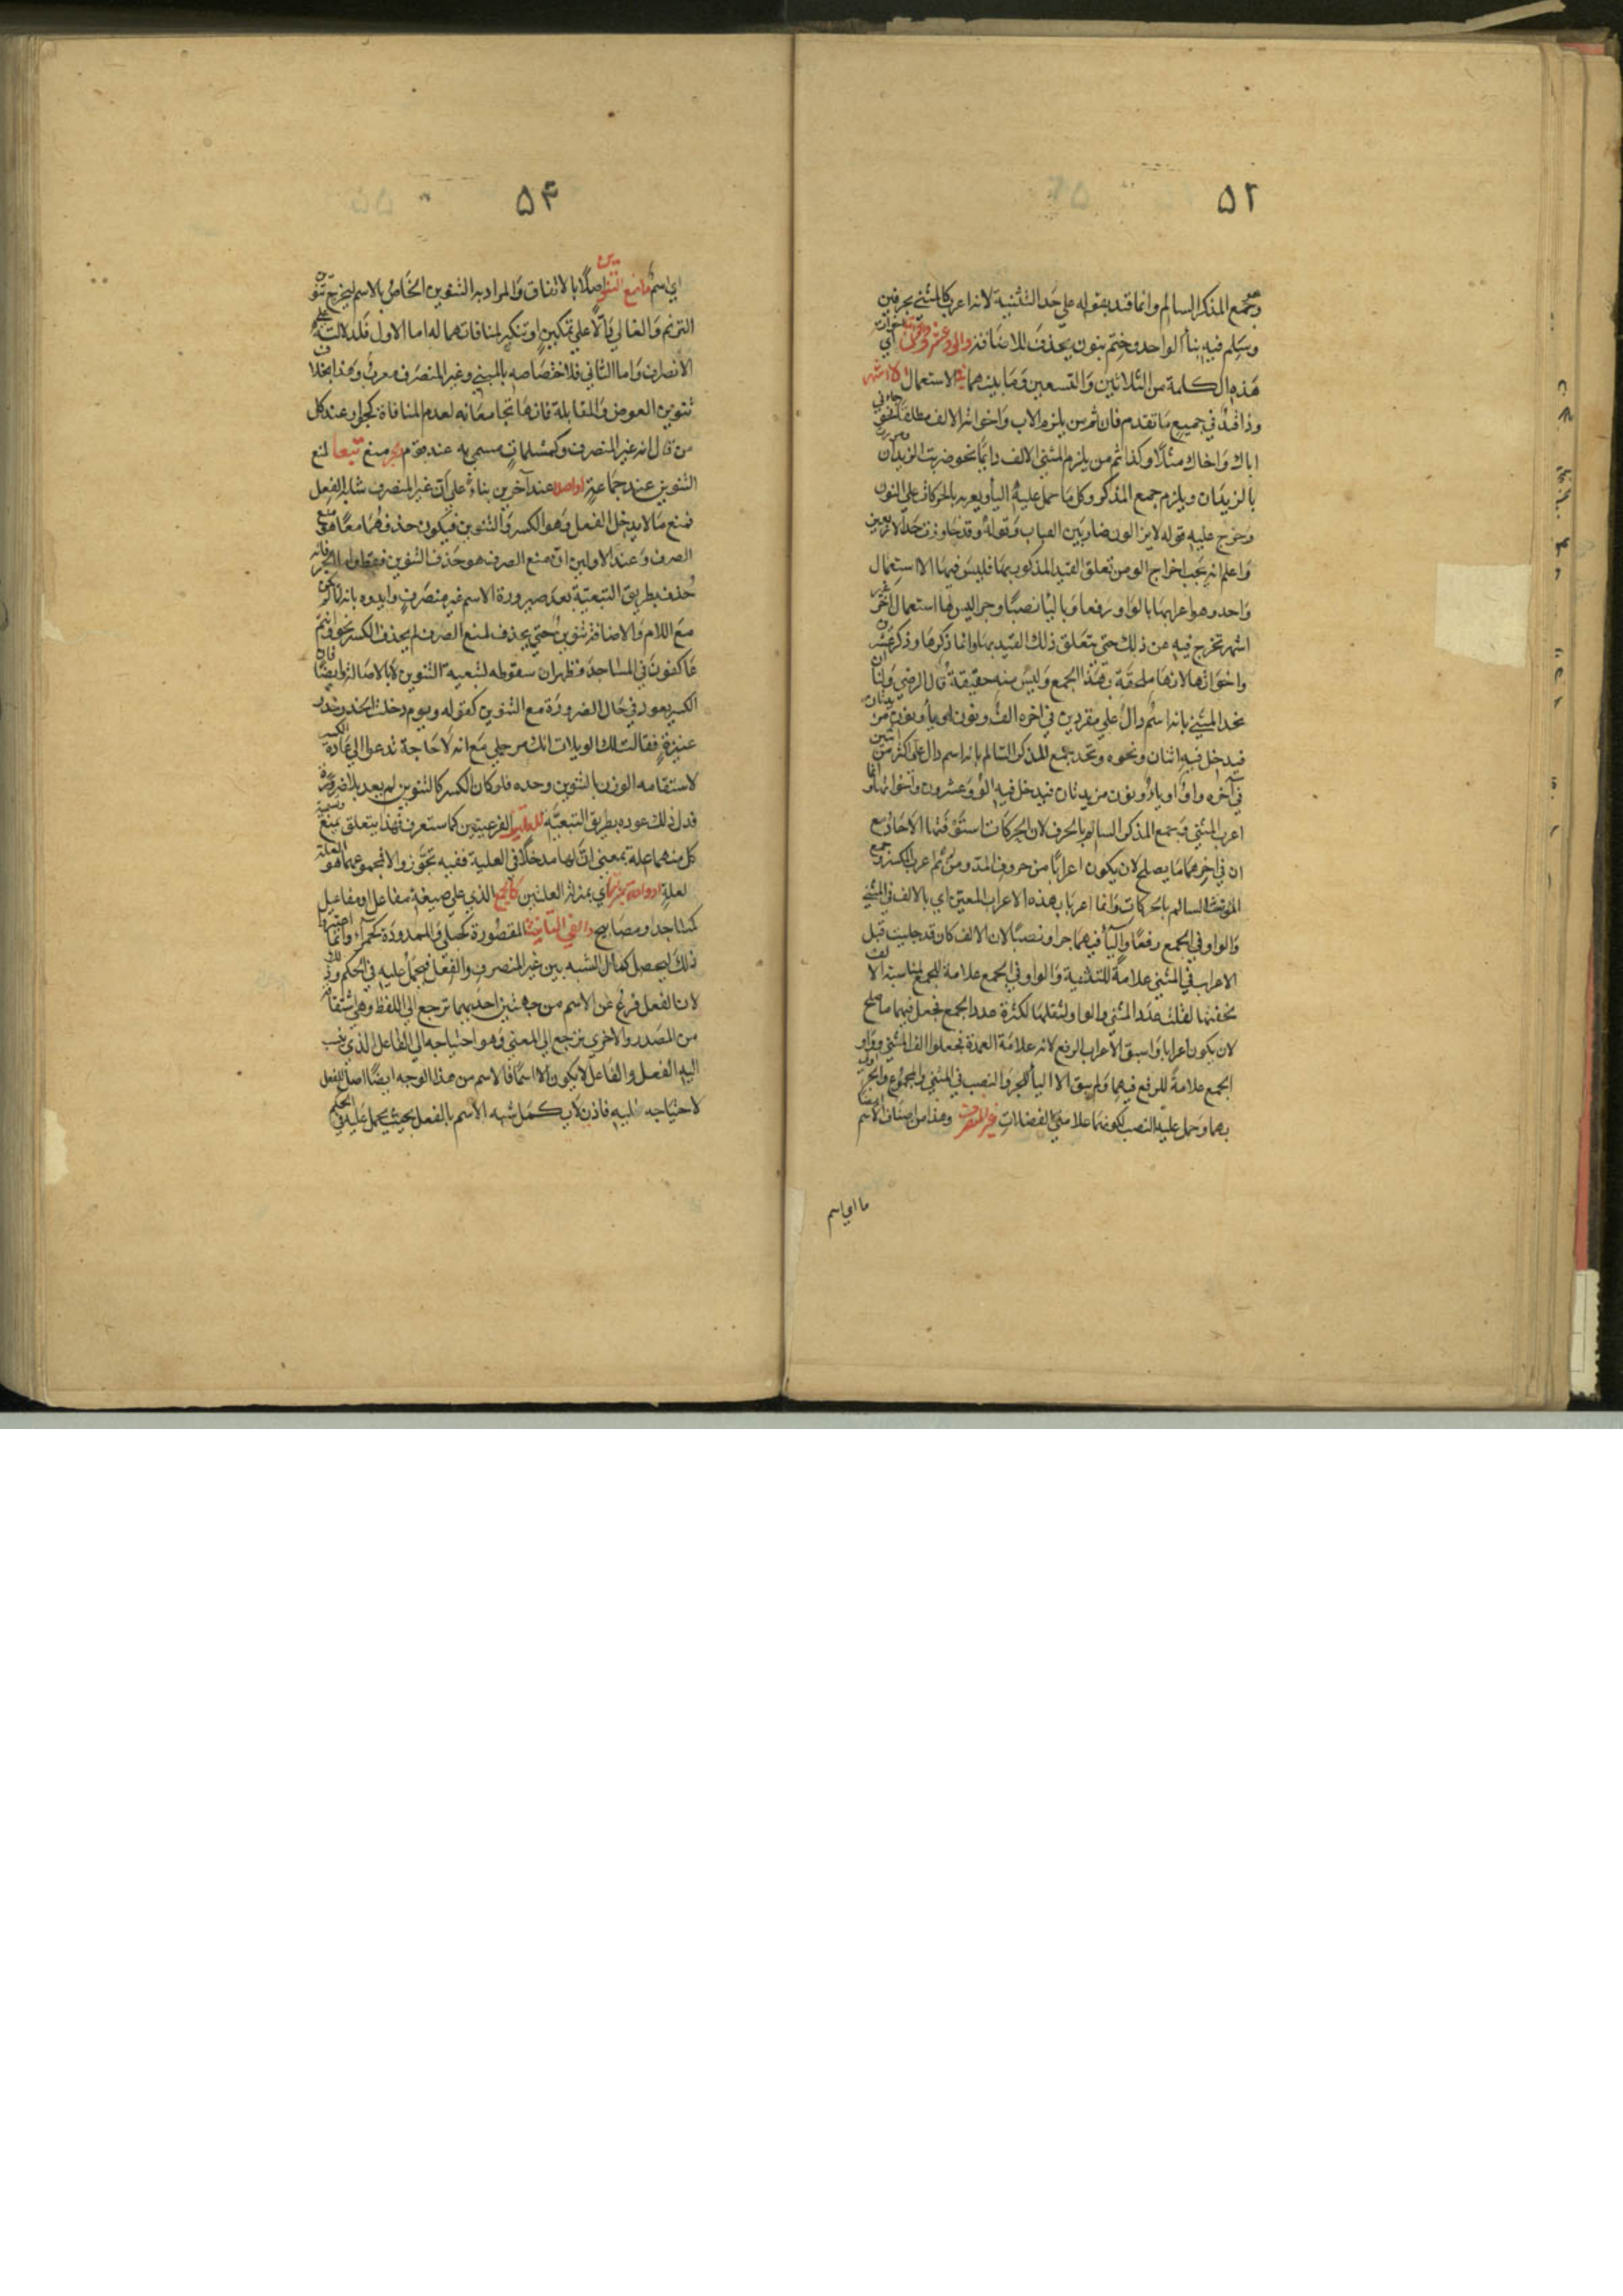 ٥٢
وجمع المذكر السالم وانما قيد بقوله علي حد التثنية لانه اعرب كالمثني بحرفين
وسلم فيه بنأ الواحد وختم بنون يحذف للاضافة والو وعشرون واخواته اي
هذه الكلمة من الثلاثين والتسعين وما بينهما الاستعمال الاشهر
وذا قيد في جميع ما تقدم فان ثم من يلزم الاب واخواته الالف مطلقا نحو جاءني
اباك واخاك مثلا وكذا ثم من يلزم المثني الالف دايما نحو ضربت الزيدان ومررت
بالزيدان ويلزم جمع المذكر وكل ما حمل عليه اليأ ويعربه بالحركات علي النون
وخرج عليه قوله لايزالون ضاربين القباب وقوله وقد جاوزت حد الاربعين
واعلم انه يجب اخراج الو من تعلق القيد المذكور بها فليس فيها الا استعمال
واحد وهو اعرابها بالواو رفعا وباليأ نصبا وجرا ليس لها استعمال اخر غير
اشهر تخرج فيه عن ذلك حتي يتعلق ذلك القيد بها وانما ذكرها وذكر عشرون
واخواتها لانها ملحقة بهذا الجمع وليس منه حقيقة قال الرضي ولنا ان
نحد المثني بانه اسم دال علي مفردين في اخره الف ونون او يأ ونون مزيدتان
فيدخل فيه اثنان ونحوه ونحد جمع المذكر السالم بانه اسم دال علي اكثر من اثنين
في آخره واو او ياء ونون مزيدتان فيدخل فيه الو وعشرون واخواتها وانما
اعرب المثني وجمع المذكر السالم بالحرف لان الحركات استوفتها الاحاد مع
ان في اخرهما ما يصلح لان يكون اعرابا من حروف المد ومن ثم اعرب المكسر وجمع
المونث السالم بالحركات وانما اعربا بهذه الاعراب المعين اي بالالف في المثني
والواو في الجمع رفعا واليأ فيهما جرا ونصبا لان الالف كان قد جلبت قبل
الاعراب في المثني علامة للتثنية والواو في الجمع علامة للجمع لمناسبة الالف
بخفتها لقلت عدد المثني والواو لثقلها لكثرة عدد الجمع فجعل فيهما ما صلح
لان يكون اعرابا واسبق الاعراب الرفع لانه علامة العمدة فجعلوا الف المثني وواو
الجمع علامة للرفع فيهما ولم يبق الا اليأ للجر والنصب في المثني والمجموع والجر اولي
بها وحمل عليه النصب لكونهما علامتي الفضلات غير المنصرف وهذا من اصناف الاسم
ما اي اسم
٥٤
اي اسم مانع التنوين اصلا بالاتفاق والمراد به التنوين الخاص بالاسم ليخرج تنوين
الترنم والغالي دالا علي تمكين او تنكير لمنافاتهما له اما الاول فلدلالته علي
الانصراف واما الثاني فلاختصاصه بالمبني وغير المنصرف معرب وهذا بخلاف
تنوين العوض والمقابلة فانها تجامعانه لعدم المنافاة كجوار عند كل
من قال انه غير المنصرف وكمسلمات مسمي به عند قوم جر منع تبعا لمنع
التنوين عند جماعة او اصلا عند آخرين بناء علي ان غير المنصرف شابه الفعل
فمنع ما لا يدخل الفعل وهو الكسر والتنوين فيكون حذفهما معا هو منع
الصرف وعند الاولين ان منع الصرف هو حذف التنوين فقط واما الجر فانه
حذف بطريق التبعية بعد صيرورة الاسم غير منصرف وايدوه بانه لما لم يكن
مع اللام والاضافة تنوين حتي يحذف لمنع الصرف لم يحذف الكسر نحو وانتم
عاكفون في المساجد فظهر ان سقوطه لتبعية التنوين لا بالاصالة وايضا فان
الكسر يعود في حال الضرورة مع التنوين كقوله ويوم دخلت الخدر خدر
عنيزة فقالت لك الويلات انك مرجلي مع انه لا حاجة تدعوا الي اعادة الكسر
لاستقامه الوزن بالتنوين وحده فلو كان الكسر كالتنوين لم يعد بلا ضرورة
فدل ذلك عوده بطريق التبعية للعلتين الفرعيتين كما ستعرف فهذا يتعلق بمنع وتسمية
كل منهما علة بمعني ان لها مدخلا في العلية ففيه تجوز والا فمجموعهما هو العلة
لعلة او واحدة بمنزلتها اي بمنزلة العلتين كالجمع الذي علي صيغة مفاعل او مفاعيل
كمساجد او مصابيح والفي التأنيث المقصورة كحبلي والممدودة كحمراء وانما اعتبروا
ذلك ليحصل كمال الشبه بين غير المنصرف والفعل فيحمل عليه في الحكم وذلك
لان الفعل فرع عن الاسم من جهتين احديهما ترجع الي اللفظ وهي اشتقاقه
من المصدر والاخري ترجع الي المعني وهو احتياجه الي الفاعل الذي نسب
اليه الفعل والفاعل لا يكون الا اسما فالاسم من هذا الوجه ايضا اصل للفعل
لاحتياجه اليه فاذن لا يكمل شبه الاسم بالفعل بحيث يحمل عليه في الحكم